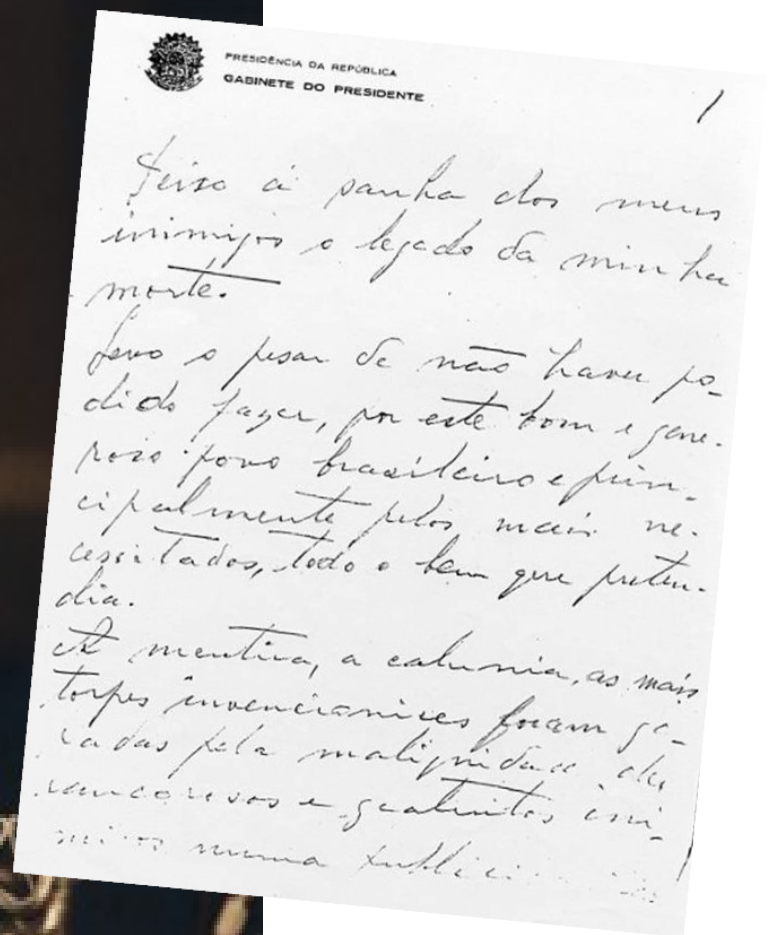 PRESIDÊNCIA DA REPÚBLICA
GABINETE DO PRESIDENTE
1
Deixo à sanha dos meus
inimigos o legado da minha
morte.
Levo o pesar de não haver po-
dido fazer, por este bom e gene-
roso povo brasileiro e prin-
cipalmente pelos mais ne-
cessitados, todo o bem que preten-
dia.
A mentira, a calunia, as mais
torpes invencionices foram ge-
radas pela malignidade de
rancorosos e gratuitos ini-
migos numa